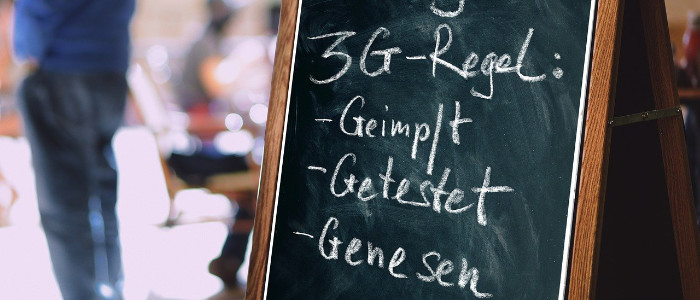 3G-Regel:
- Geimpft
- Getestet
- Genesen